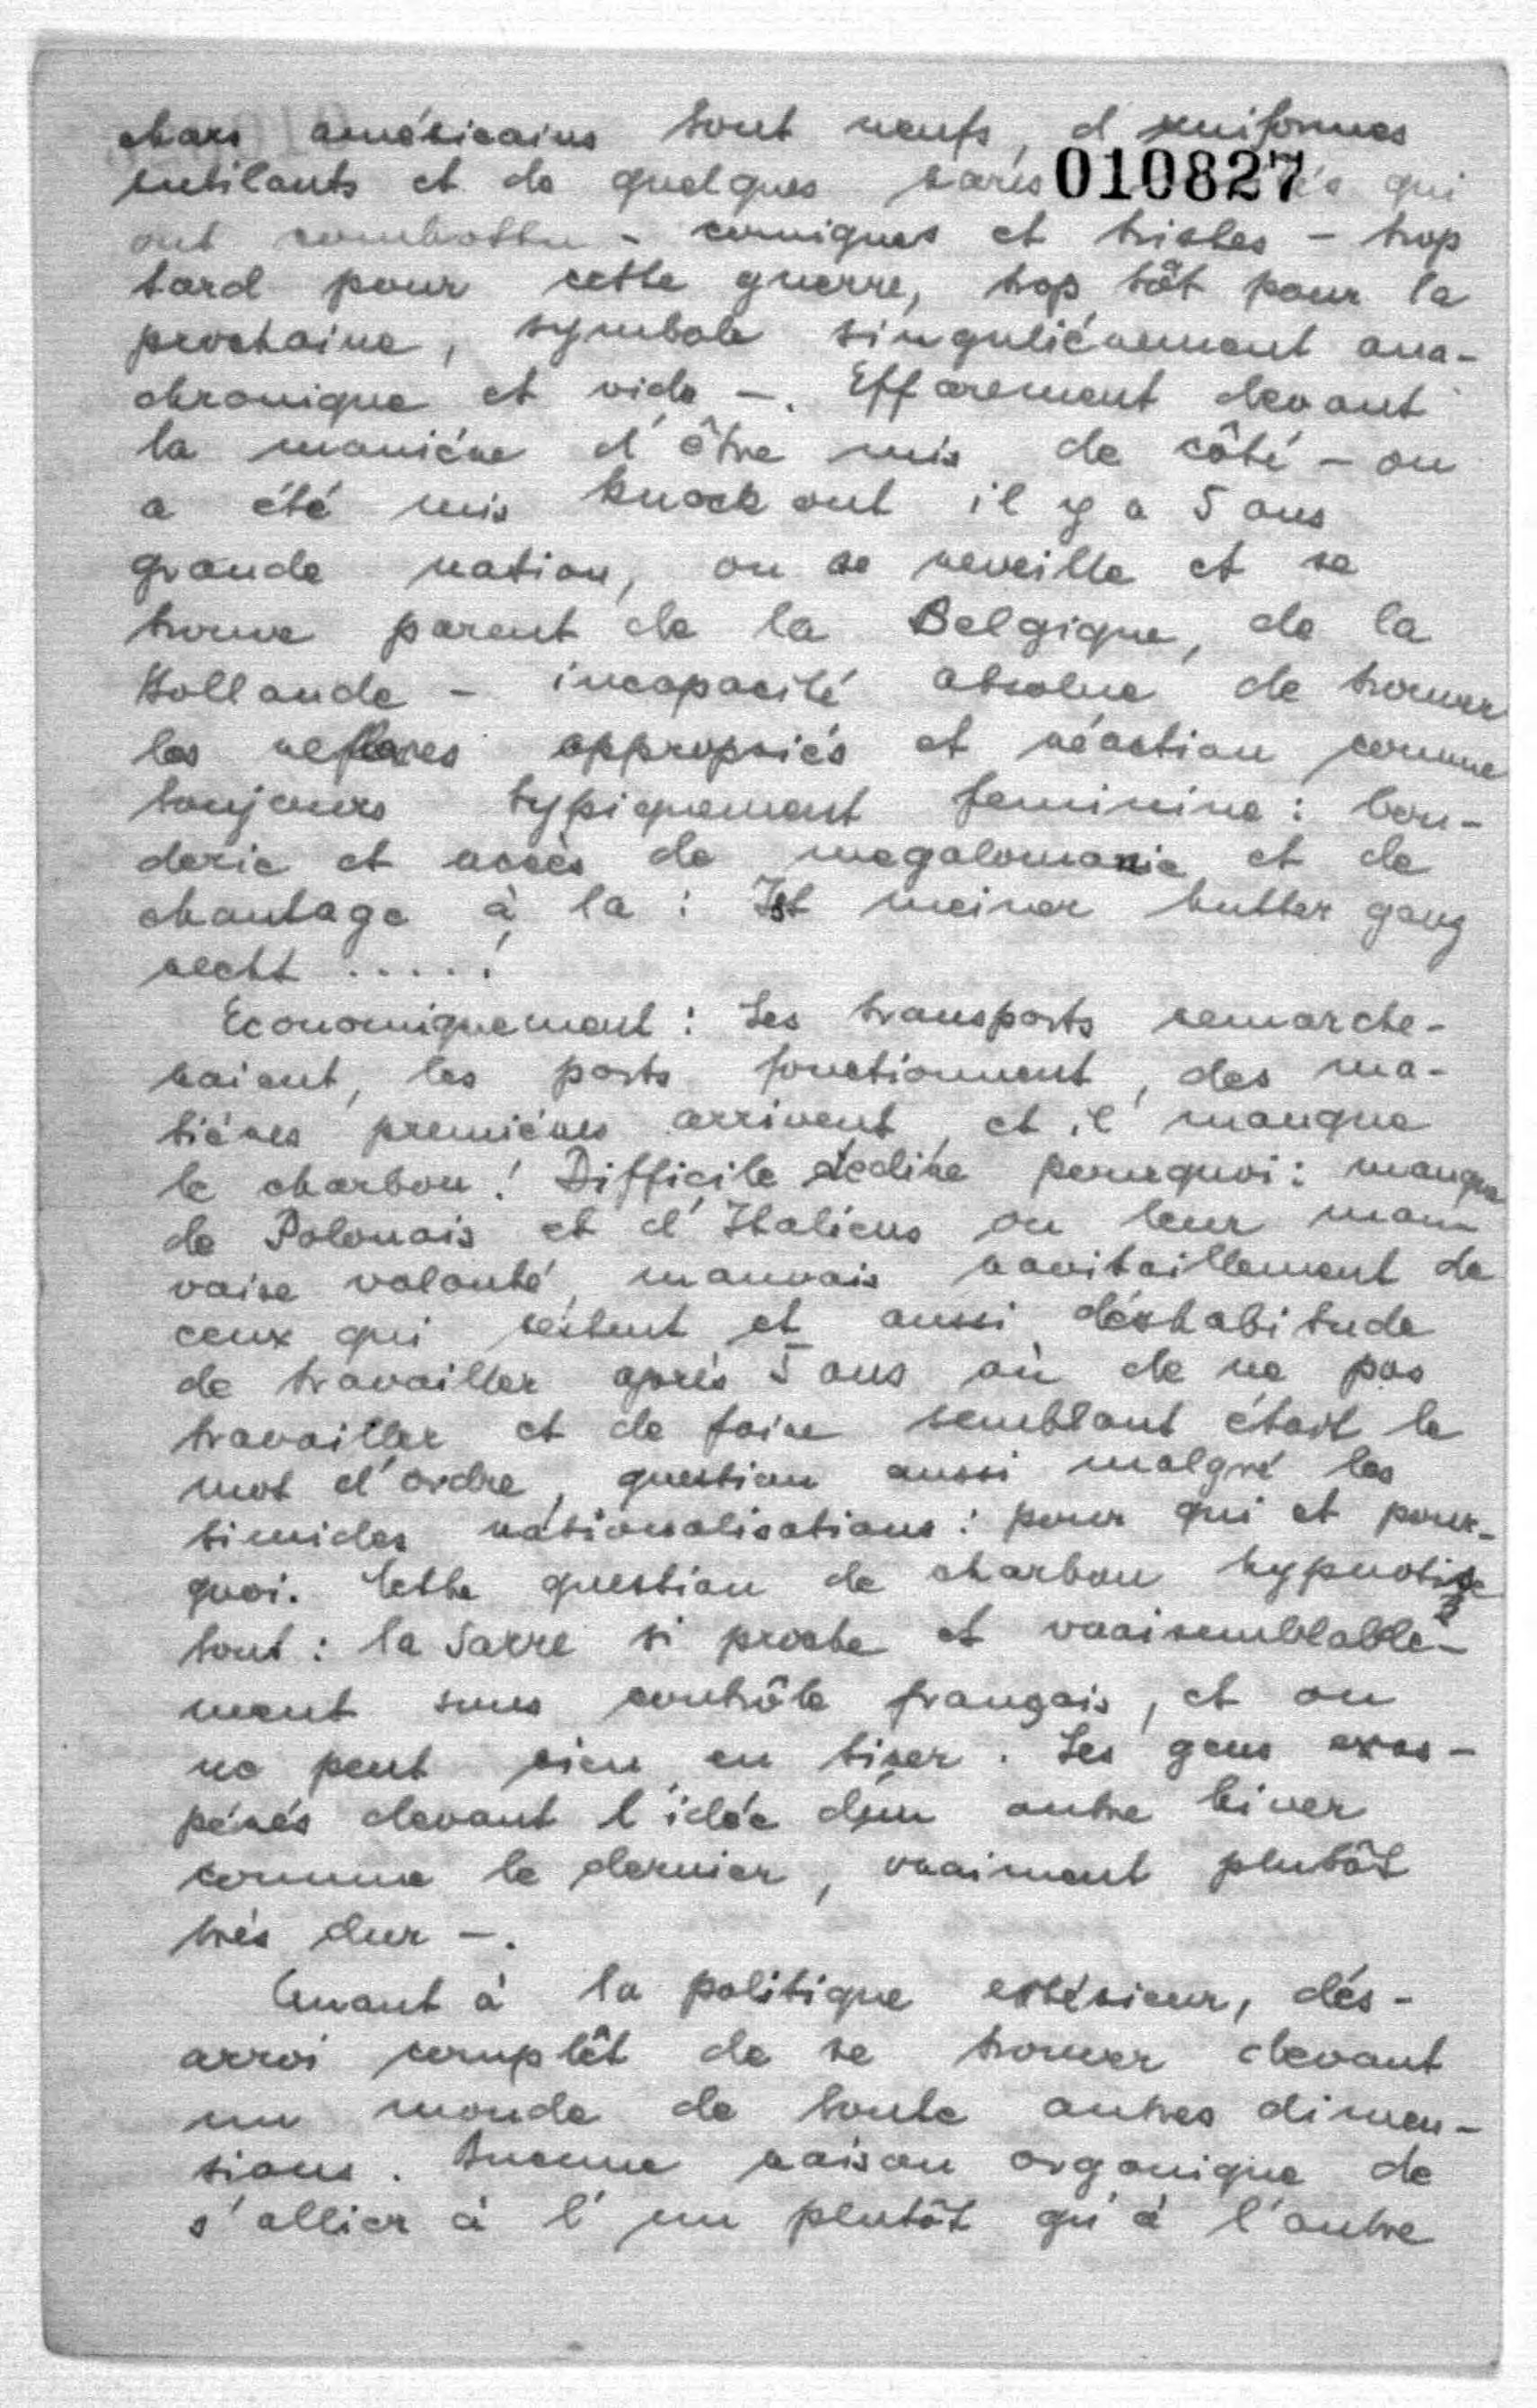 chars américains tout neufs, d'uniformes
rutilants et de quelques rares 010827 és qui
ont combattu - comiques et tristes - trop
tard pour cette guerre, trop tôt pour la
prochaine, symbole singulièrement ana-
chronique et vide -. Effarement devant
la manière d'être mis de côté - on
a été mis knock out il y a 5 ans
grande nation, on se reveille et se
trouve parent de la Belgique, de la
Hollande - incapacité absolue de trouver
les reflexes appropriés et réaction comme
toujours typiquement feminine: bou-
derie et accès de megalomanie et de
chantage à la: Ist meiner Mutter ganz
recht .....!
Economiquement: Les transports remarche-
raient, les ports fonctionnent, des ma-
tières premières arrivent, et il manque
le charbon! Difficile de dire pourquoi: manque
de Polonais et d'Italiens ou leur mau-
vaise volonté, mauvais ravitaillement de
ceux qui réstent et aussi déshabitude
de travailler après 5 ans où de ne pas
travailler et de faire semblant était le
mot d'ordre, question aussi malgré les
timides nationalisations: pour qui et pour-
quoi. Cette question de charbon hypnotise
tout: la Sarre si proche et vraisemblable-
ment sous contrôle français, et on
ne peut rien en tirer. Les gens exas-
pérés devant l'idée d'un autre hiver
comme le dernier, vraiment plutôt
très dur -.
Quant à la politique extérieur, dés-
arroi complêt de se trouver devant
un monde de toute autres dimen-
sions. Aucune raison organique de
s'allier à l'un plutôt qu'à l'autre